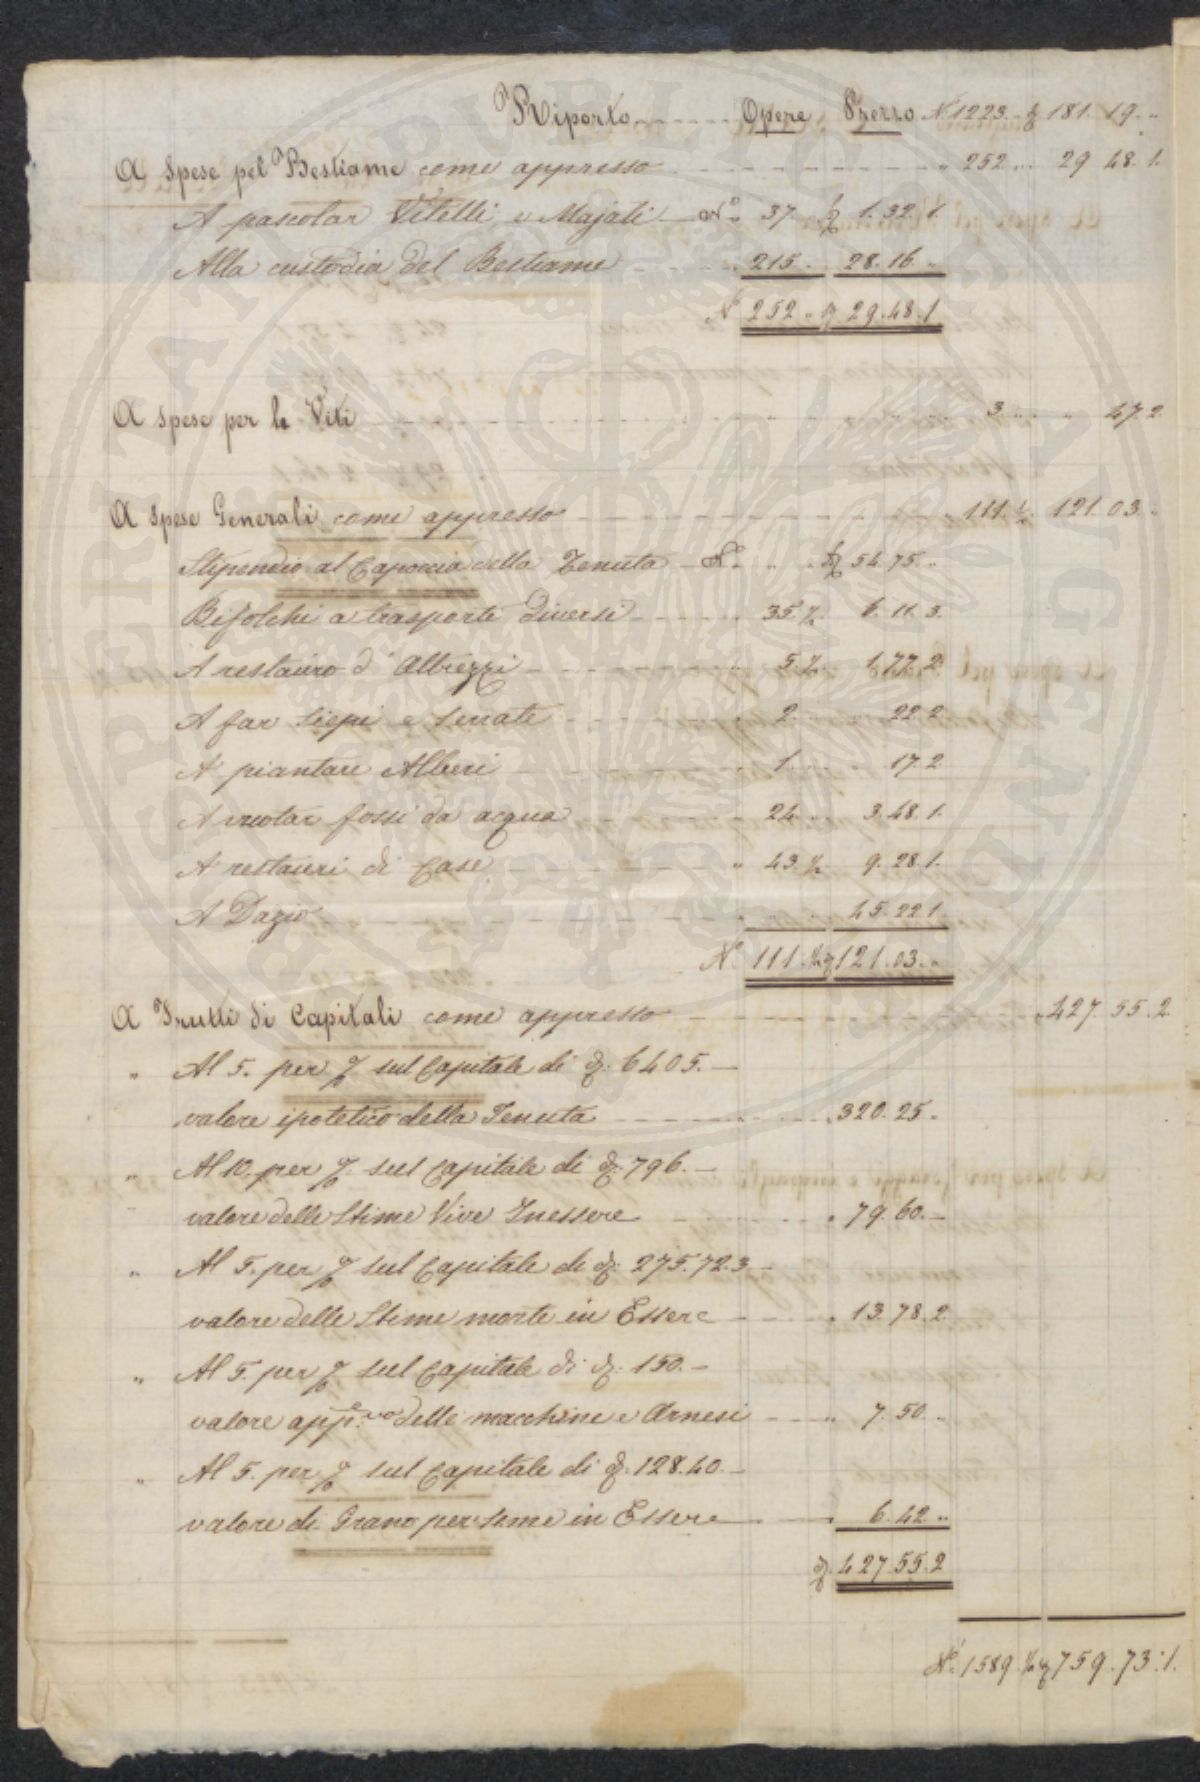 Riporto Opere Prezzo N. 1223. 181. 19. "
A Spese pel Bestiame come appresso " 252 .. 29 48. 1.
A pascolar Vitelli e Majali N.° 37. 1. 32. 1.
Alla custodia del Bestiame 215. 28. 16. "
N. 252. 29. 48. 1
A spese per le Viti 3 .. " 47. 2
A Spese Generali come appresso " 111. ½ 121. 03. "
Stipendio al Capoccia della Tenuta N. " " 54. 75. "
Bifolchi a trasporti diversi 35. ½ 6. 11. 3.
A restauro d'Attrezzi " 5. ½ 1. 77. 2.
A far Siepi e serrate " 2. " 22. 2
A piantare Alberi " 1. " 17. 2
A vuotar fossi da acqua 24 .. 3. 48. 1.
A restauri di Case " 43. ½ 9. 28. 1.
A Dazio " " 45. 22. 1
N. 111. ½ 121. 03. "
A Frutti di Capitali come appresso 427. 55. 2
" Al 5. per % sul Capitale di 6405. —
valore ipotetico della Tenuta 320. 25. "
" Al 10. per % sul Capitale di 796. —
valore delle Stime Vive Inessere " 79. 60. —
" Al 5. per % sul Capitale di 275. 72. 3 —
valore delle Stime morte in Essere " 13. 78. 2
" Al 5. per % sul Capitale di 150. —
valore app.vo delle macchine e Arnesi " 7. 50. "
" Al 5. per % sul Capitale di 128. 40. —
valore di Grano per seme in Essere 6. 42 "
427. 55. 2
N. 1589. ½ 759. 73. 1.